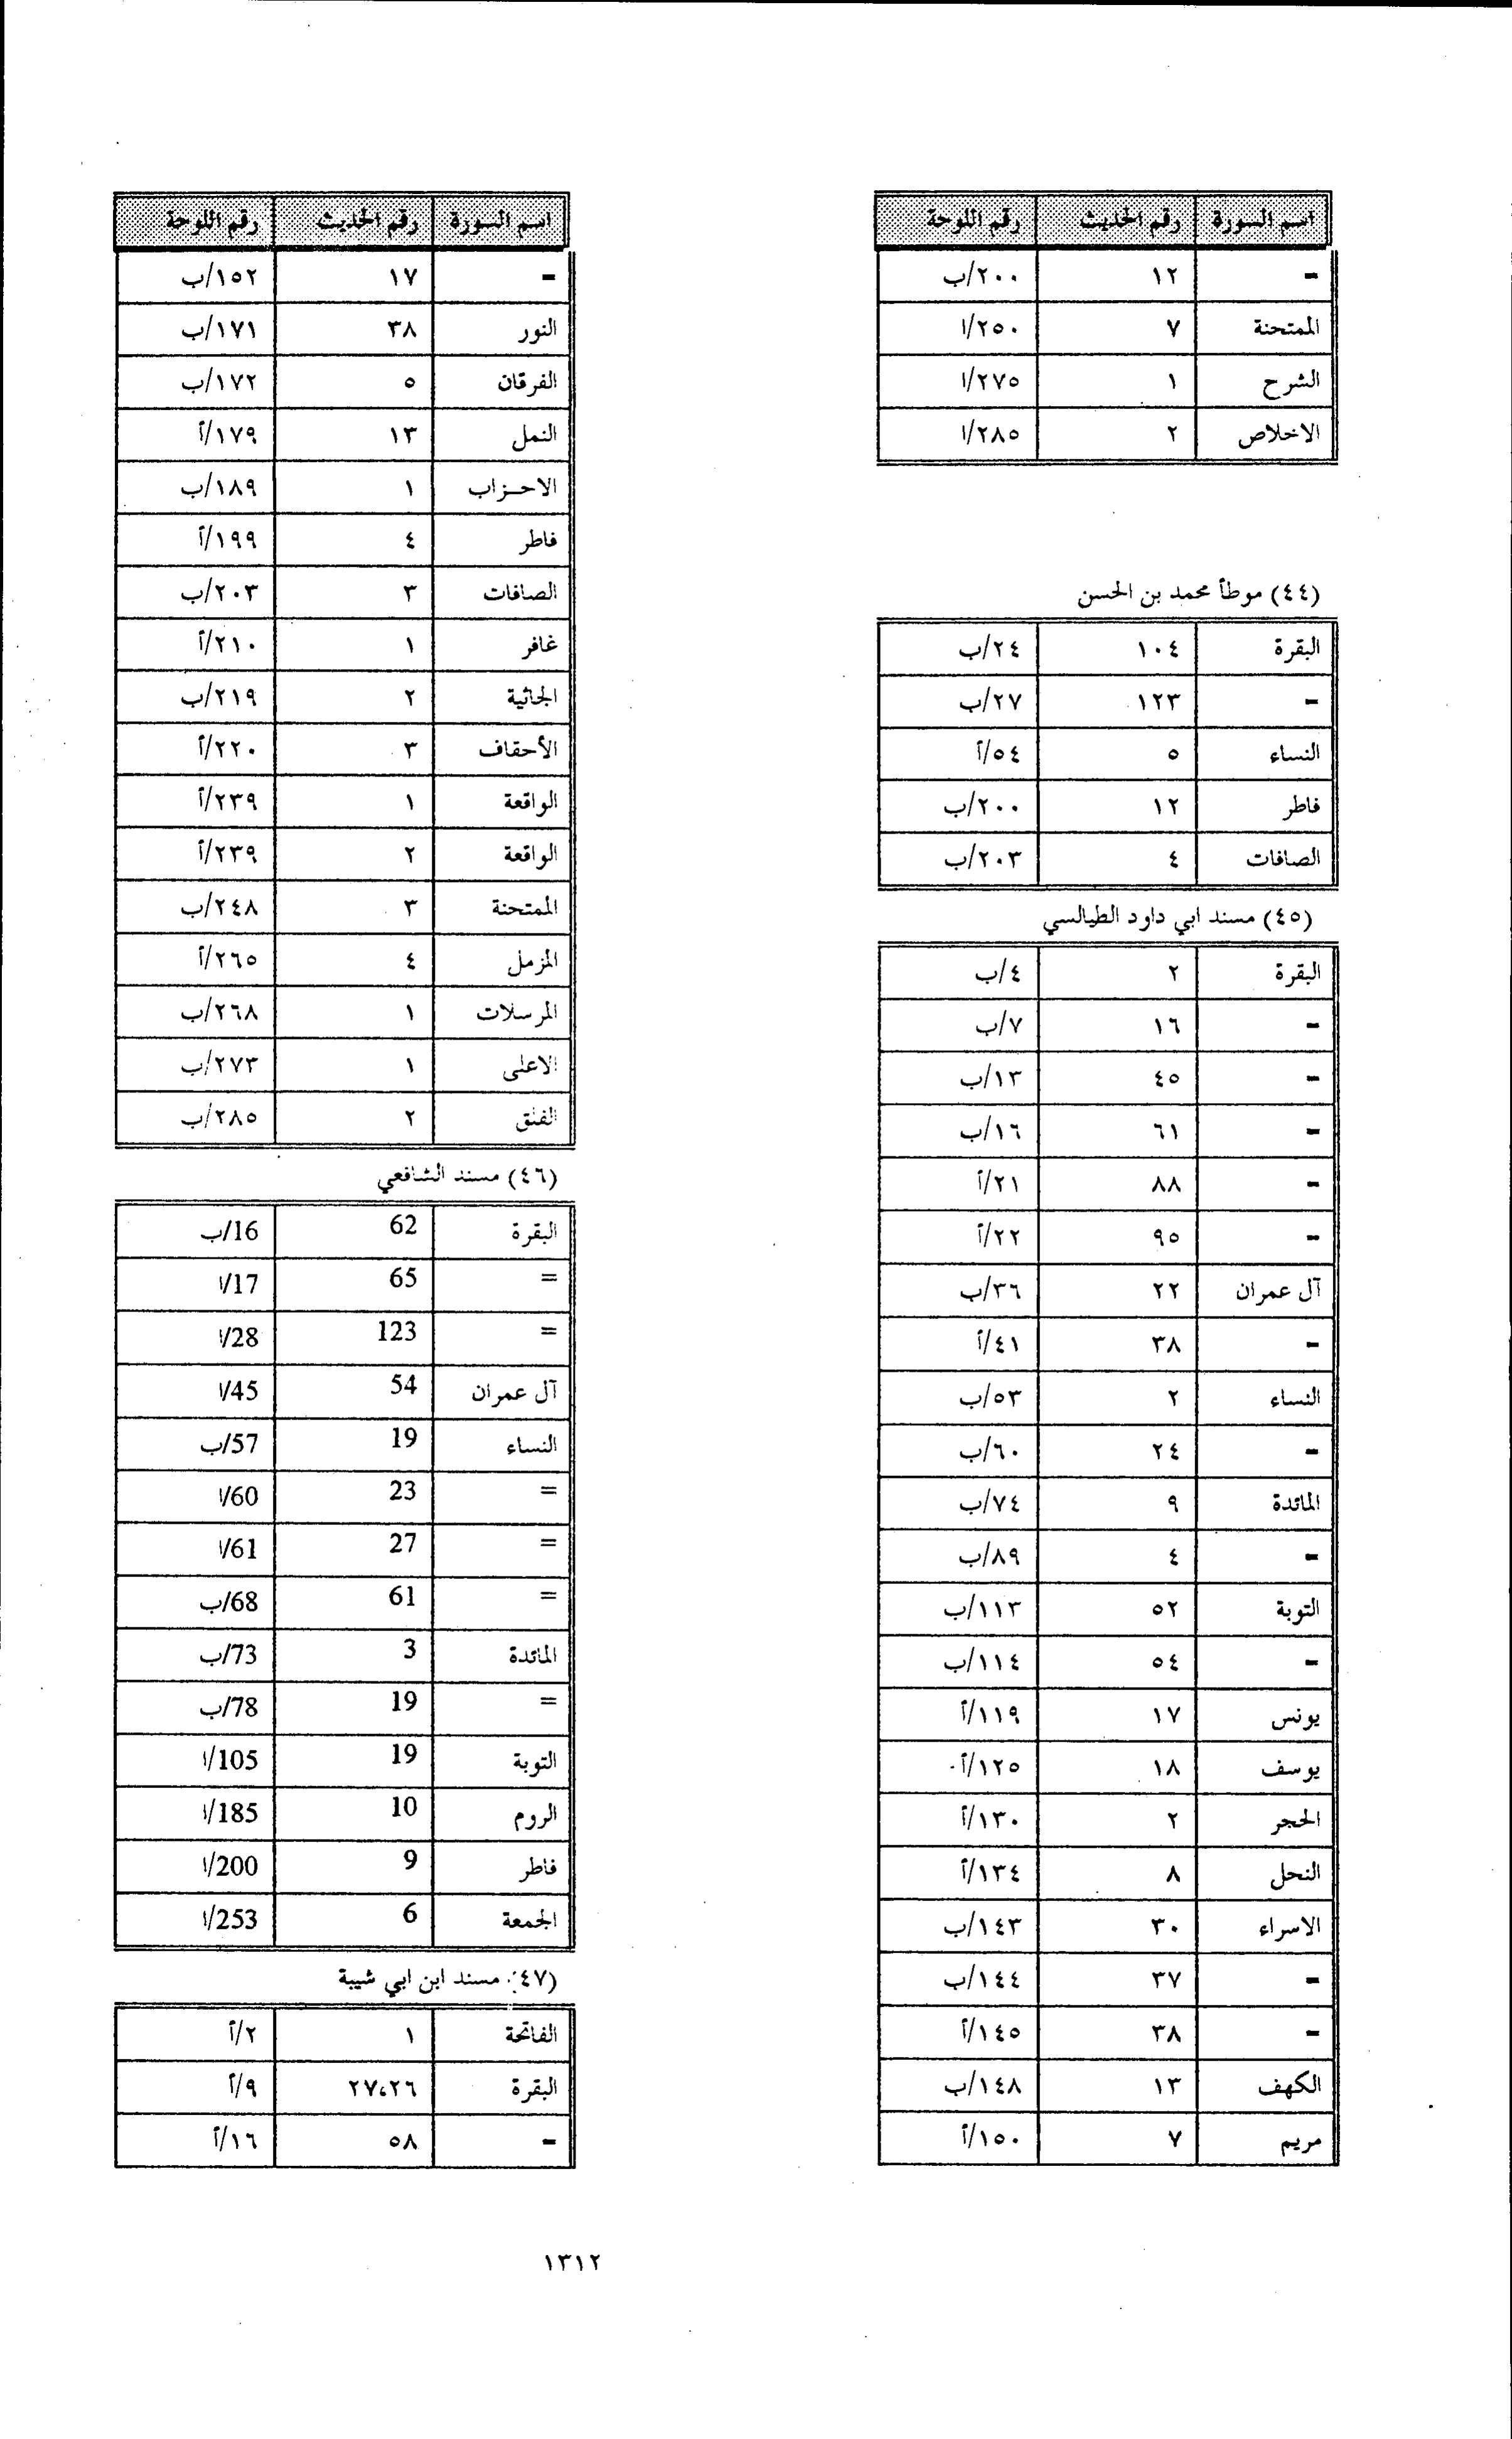 اسم السورة رقم الحديث رقم اللوحة
= ١٢ ٢٠٠/ب
الممتحنة ٧ ٢٥٠/ا
الشرح ١ ٢٧٥/ا
الاخلاص ٢ ٢٨٥/ا
(٤٤) موطأ محمد بن الحسن
البقرة ١٠٤ ٢٤/ب
= ١٢٣ ٢٧/ب
النساء ٥ ٥٤/أ
فاطر ١٢ ٢٠٠/ب
الصافات ٤ ٢٠٣/ب
(٤٥) مسند ابي داود الطيالسي
البقرة ٢ ٤/ب
= ١٦ ٧/ب
= ٤٥ ١٣/ب
= ٦١ ١٦/ب
= ٨٨ ٢١/أ
= ٩٥ ٢٢/أ
آل عمران ٢٢ ٣٦/ب
= ٣٨ ٤١/أ
النساء ٢ ٥٣/ب
= ٢٤ ٦٠/ب
المائدة ٩ ٧٤/ب
= ٤ ٨٩/ب
التوبة ٥٢ ١١٣/ب
= ٥٤ ١١٤/ب
يونس ١٧ ١١٩/أ
يوسف ١٨ ١٢٥/أ
الحجر ٢ ١٣٠/أ
النحل ٨ ١٣٤/أ
الاسراء ٣٠ ١٤٣/ب
= ٣٧ ١٤٤/ب
= ٣٨ ١٤٥/أ
الكهف ١٣ ١٤٨/ب
مريم ٧ ١٥٠/أ
اسم السورة رقم الحديث رقم اللوحة
= ١٧ ١٥٢/ب
النور ٣٨ ١٧١/ب
الفرقان ٥ ١٧٢/ب
النمل ١٣ ١٧٩/أ
الاحزاب ١ ١٨٩/ب
فاطر ٤ ١٩٩/أ
الصافات ٣ ٢٠٣/ب
غافر ١ ٢١٠/أ
الجاثية ٢ ٢١٩/ب
الأحقاف ٣ ٢٢٠/أ
الواقعة ١ ٢٣٩/أ
الواقعة ٢ ٢٣٩/أ
الممتحنة ٣ ٢٤٨/ب
المزمل ٤ ٢٦٥/أ
المرسلات ١ ٢٦٨/ب
الاعلى ١ ٢٧٣/ب
الفلق ٢ ٢٨٥/ب
(٤٦) مسند الشافعي
البقرة 62 16/ب
= 65 17/ا
= 123 28/ا
آل عمران 54 45/ا
النساء 19 57/ب
= 23 60/ا
= 27 61/ا
= 61 68/ب
المائدة 3 73/ب
= 19 78/ب
التوبة 19 105/ا
الروم 10 185/ا
فاطر 9 200/ا
الجمعة 6 253/ا
(٤٧) مسند ابن ابي شيبة
الفاتحة ١ ٢/أ
البقرة ٢٦،٢٧ ٩/أ
= ٥٨ ١٦/أ
١٣١٢